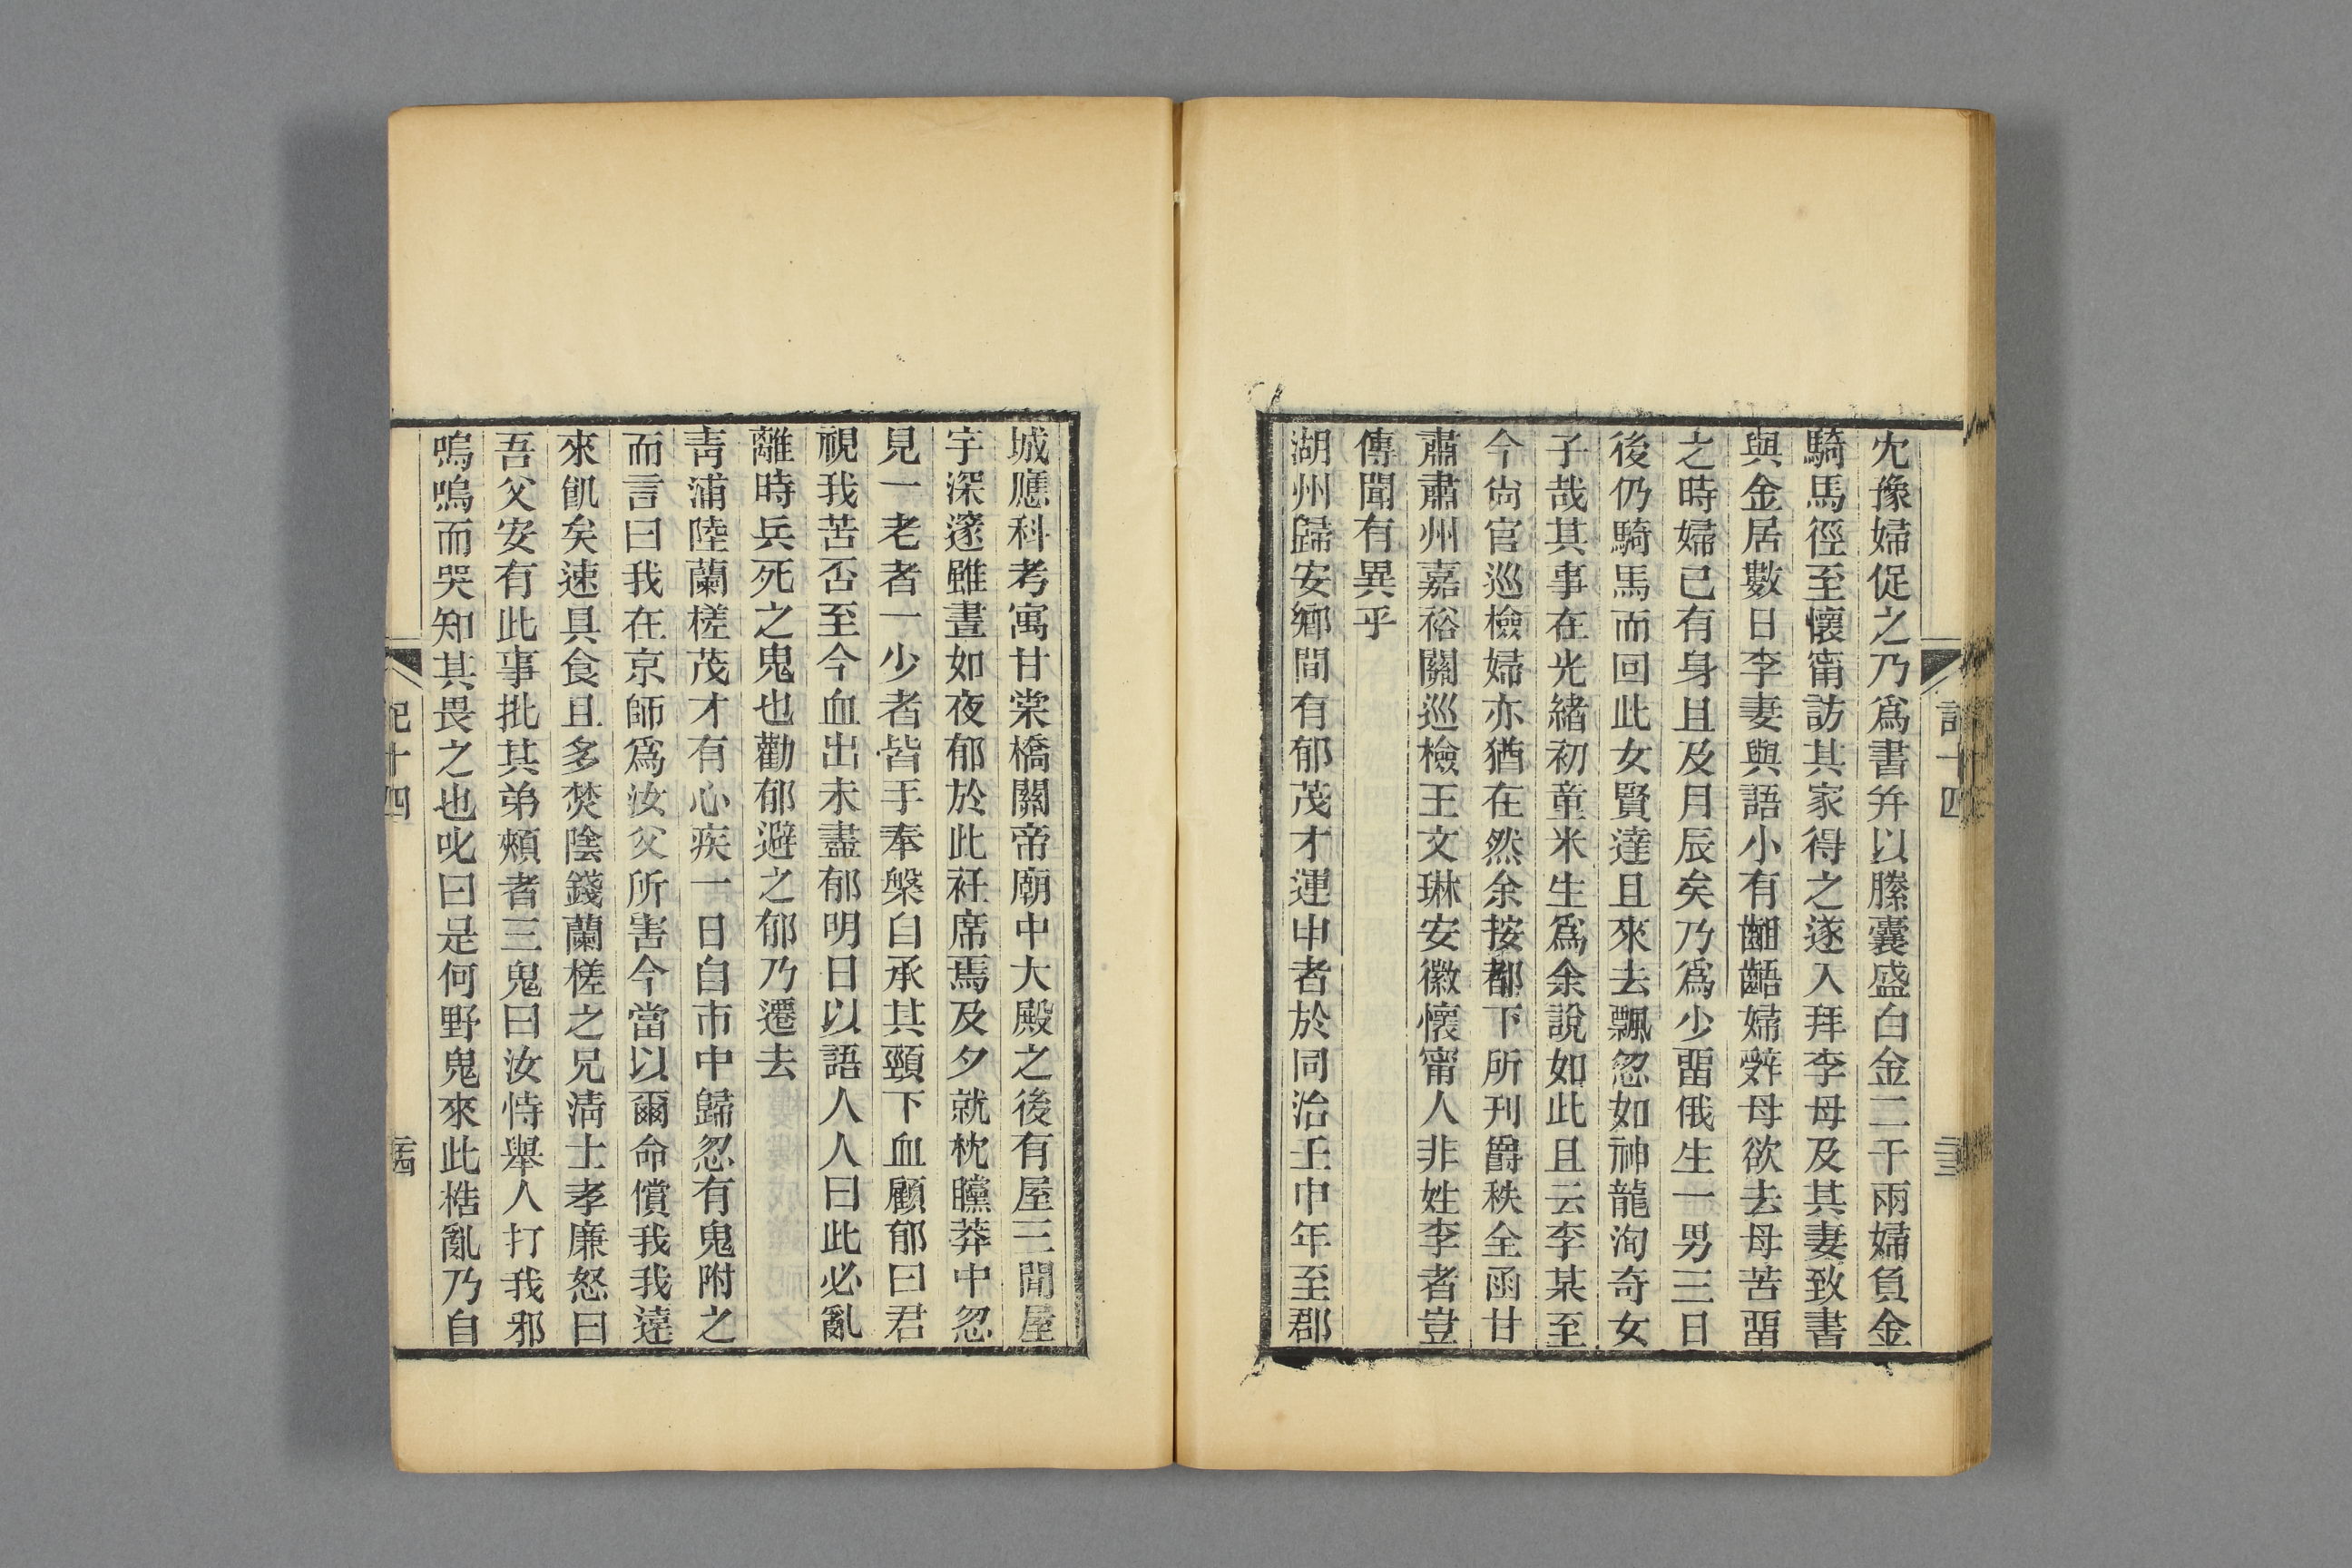 宂豫婦促之乃爲書幷以縢囊盛白金二千兩婦負金
騎馬徑至懷甯訪其家得之遂入拜李母及其妻致書
與金居數日李妻與語小有齟齬婦辤母欲去母苦畱
之時婦已有身且及月辰矣乃爲少畱俄生一男三日
後仍騎馬而回此女賢達且來去飄忽如神龍洵奇女
子哉其事在光緒初童米生爲余說如此且云李某至
今尙官巡檢婦亦猶在然余按都下所刊爵秩全函甘
肅肅州嘉裕關巡檢王文琳安徽懷甯人非姓李者豈
傳聞有異乎
湖州歸安鄉間有郁茂才運中者於同治壬申年至郡
城應科考寓甘棠橋關帝廟中大殿之後有屋三間屋
宇深邃雖晝如夜郁於此衽席焉及夕就枕矇莽中忽
見一老者一少者皆手奉槃自承其頸下血顧郁曰君
視我苦否至今血出未盡郁明日以語人人曰此必亂
離時兵死之鬼也勸郁避之郁乃遷去
靑浦陸蘭槎茂才有心疾一日自市中歸忽有鬼附之
而言曰我在京師爲汝父所害今當以爾命償我我遠
來飢矣速具食且多焚陰錢蘭槎之兄淸士孝廉怒曰
吾父安有此事批其弟頰者三鬼曰汝恃舉人打我邪
嗚嗚而哭知其畏之也叱曰是何野鬼來此梏亂乃自
記十四